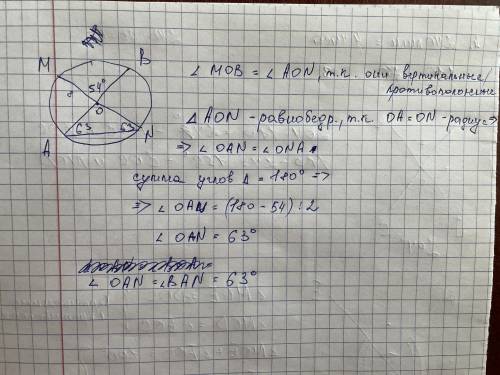 M
B
54°
O
63
63
A
N
∠ MOB = ∠ AON, т.к. они вертикальные/
противоположные
Δ AON - равнобедр., т.к. OA = ON - радиус ⇒
⇒ ∠ OAN = ∠ ONA.
сумма углов Δ = 180° ⇒
⇒ ∠ OAN = (180 - 54) : 2
∠ OAN = 63°
∠ OAN = ∠BAN = 63°